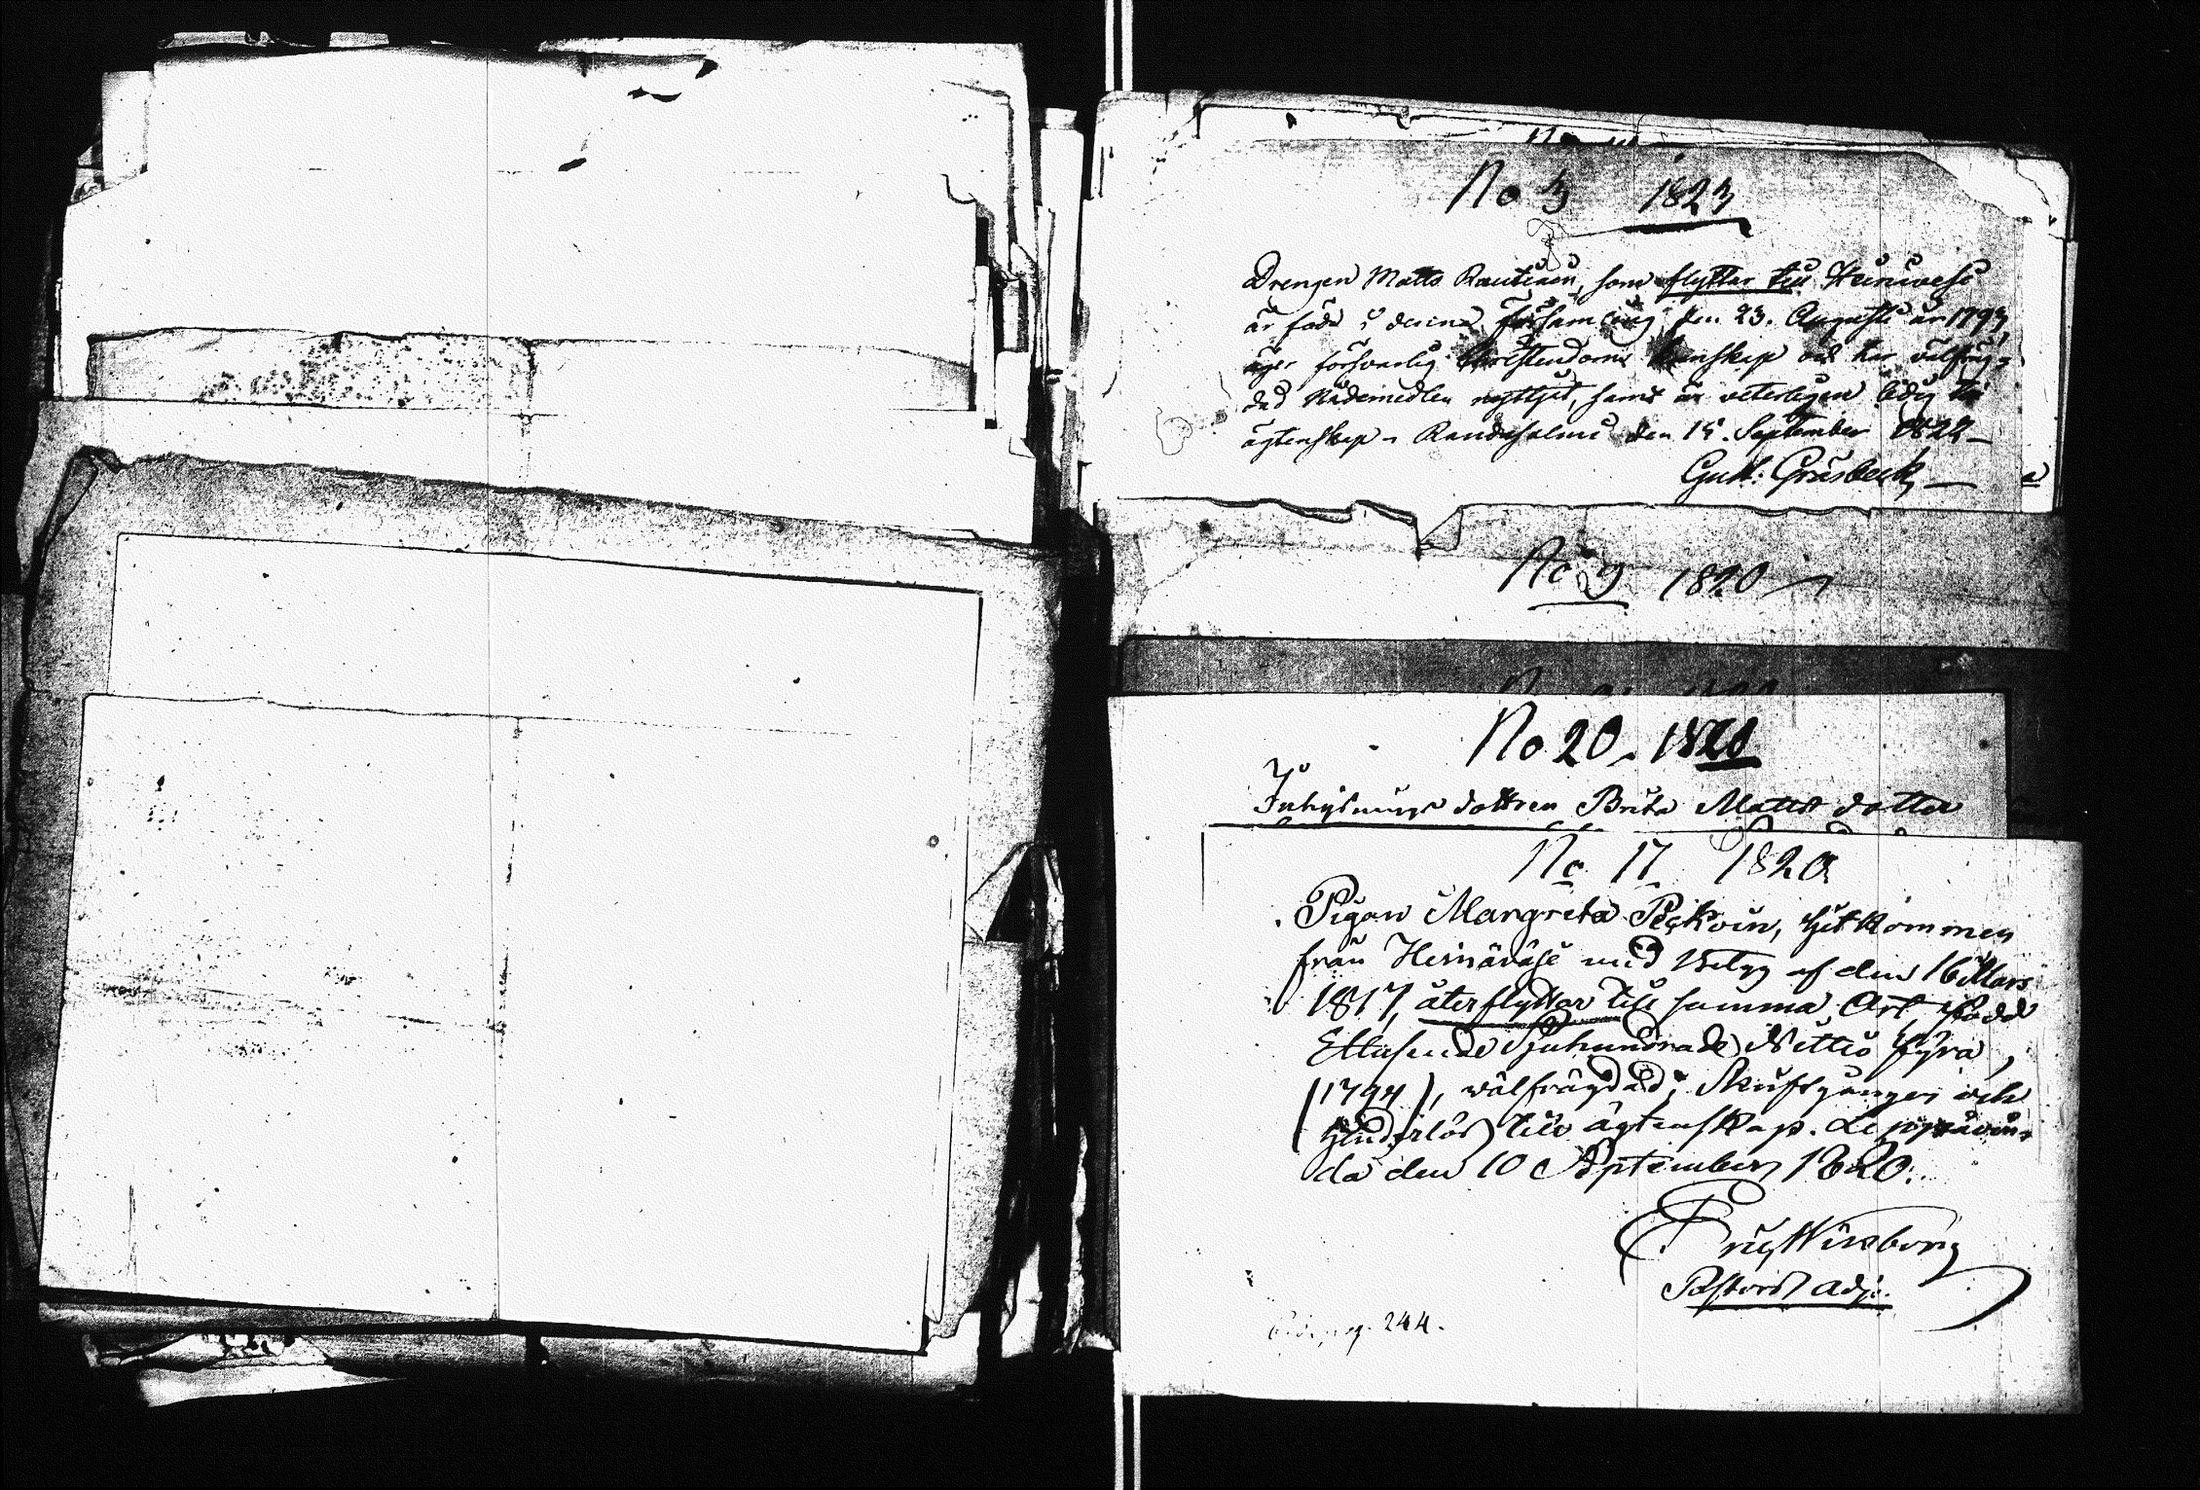 No 3 1823
Drengen Matts Rautiain, som flyttar till Heinävesi
är född i denna Församling den 23. Augusti år 1793,
äger försvarlig Christendoms kunskap och har välfräg-
dad Nådemedlen nyttjat, samt är veterligen ledig till
ägtenskap. Randasalmi den 15. September 1822
Gust: Gråsbeck
No 9 1820
No 20. 1820
Inhysings dottren Brita Matts dotter
No 17 1820
Pigan Margreta Pechoin, hitkommen
från Heinäväsi med Betyg af den 16 Mars
1817, återflyttar till samma Ort, född
Ettusende Sjuhundrade Nittio fyra,
(1794), wälfrägdad, Skriftgången och
hinderlös till ägtenskap. Leppävir-
da den 10 September 1820.
Pastors Adj.
pag. 244.